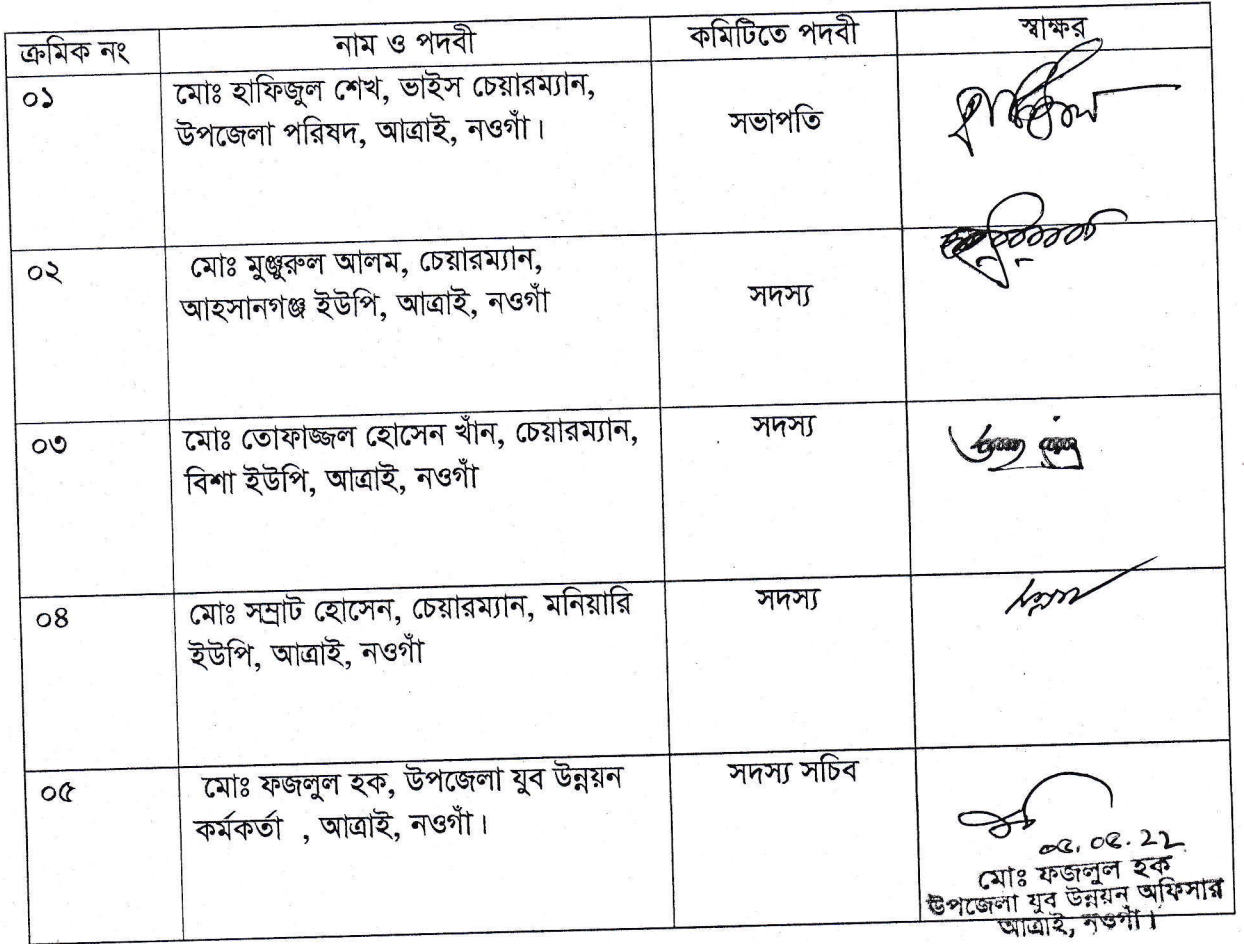 ক্রমিক নং নাম ও পদবী কমিটিতে পদবী স্বাক্ষর
০১ মোঃ হাফিজুল শেখ, ভাইস চেয়ারম্যান, সভাপতি
উপজেলা পরিষদ, আত্রাই, নওগাঁ।
০২ মোঃ মুঞ্জুরুল আলম, চেয়ারম্যান,
আহসানগঞ্জ ইউপি, আত্রাই, নওগাঁ সদস্য
০৩ মোঃ তোফাজ্জল হোসেন খাঁন, চেয়ারম্যান, সদস্য
বিশা ইউপি, আত্রাই, নওগাঁ
০৪ মোঃ সম্রাট হোসেন, চেয়ারম্যান, মনিয়ারি সদস্য
ইউপি, আত্রাই, নওগাঁ
০৫ মোঃ ফজলুল হক, উপজেলা যুব উন্নয়ন সদস্য সচিব
কর্মকর্তা , আত্রাই, নওগাঁ।
০৫.০৫.২২
মোঃ ফজলুল হক
উপজেলা যুব উন্নয়ন অফিসার
আত্রাই, নওগাঁ।